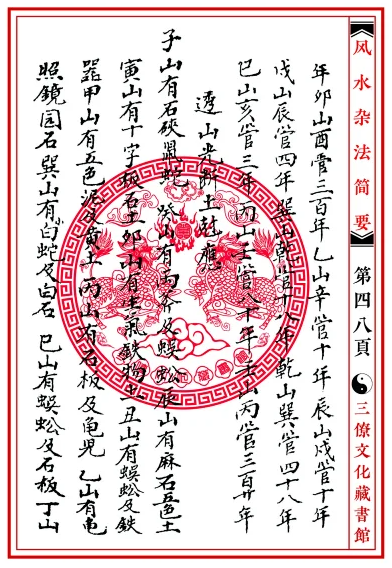 风水杂法简要 第四八頁 三僚文化藏書館
年卯山酉管三百年乙山辛管十年辰山戌管十年
戌山辰管四年巽山乾管十八年乾山巽管四十八年
巳山亥管三年丙山壬管八十年壬山丙管三百廿年
透山光断土乾應
子山有石硤鼠蛇癸山有両斧及蜈蚣辰山有麻石五色土
寅山有十字坟石土卯山有生氣鉄物土丑山有蜈蚣及鉄
器甲山有五色泥及黄土丙山有石板及亀児乙山有亀
照鏡园石巽山有白蛇及白石 巳山有蜈蚣及石板丁山